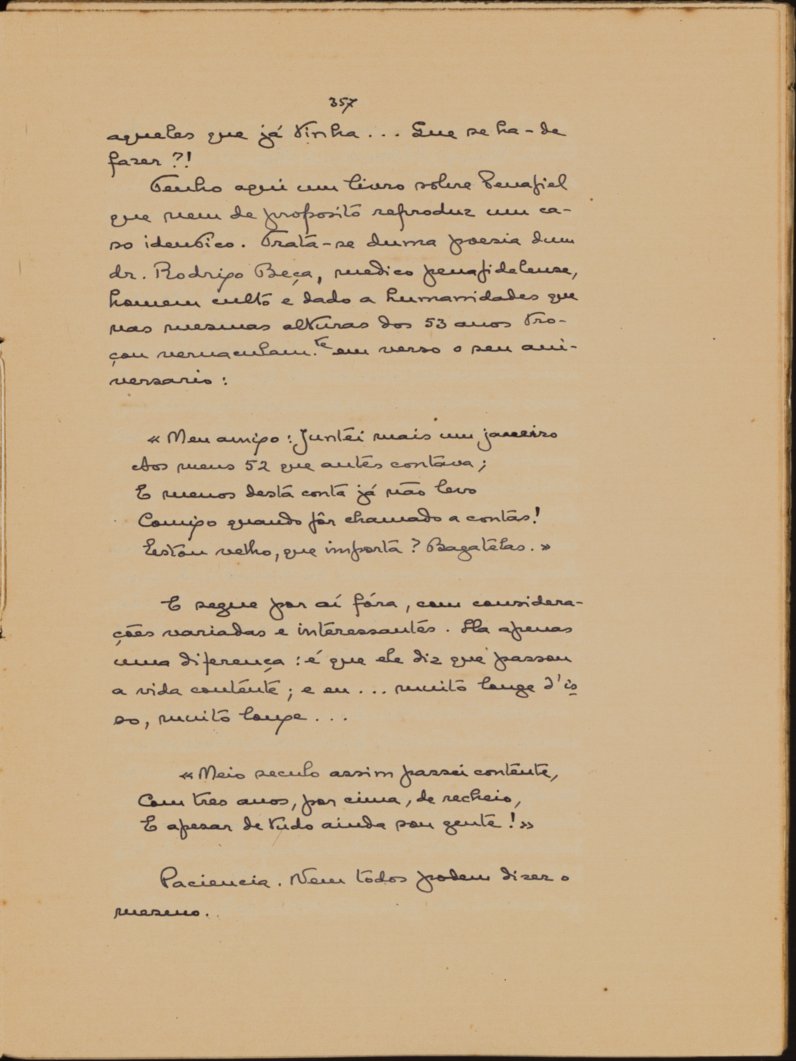 357
aqueles que já tinha... Que se ha-de
fazer?!
Tenho aqui um livro sobre Penafiel
que vem de proposito reproduz um ca-
so identico. Trata-se duma poesia dum
dr. Rodrigo Beça, medico penafidelense,
homem culto e dado a humanidades que
nas mesmas alturas dos 53 anos tro-
çou vernaculam.te em verso o seu ani-
versario:
«Meu amigo: Juntei mais um janeiro
Aos meus 52 que antes contava;
E menos desta conta já não levo
Comigo quando fôr chamado a contas!
Estou velho, que importa? Bagatelas.»
E segue por aí fóra, com considera-
ções variadas e interessantes. Ha apenas
uma diferença: é que ele diz que passou
a vida contente; e eu... muito longe d'is
so, muito longe...
«Meio seculo assim passei contente,
Com tres anos, por cima, de recheio,
E apesar de tudo ainda sou gente!»
Paciencia. Nem todos podem dizer o
mesmo.